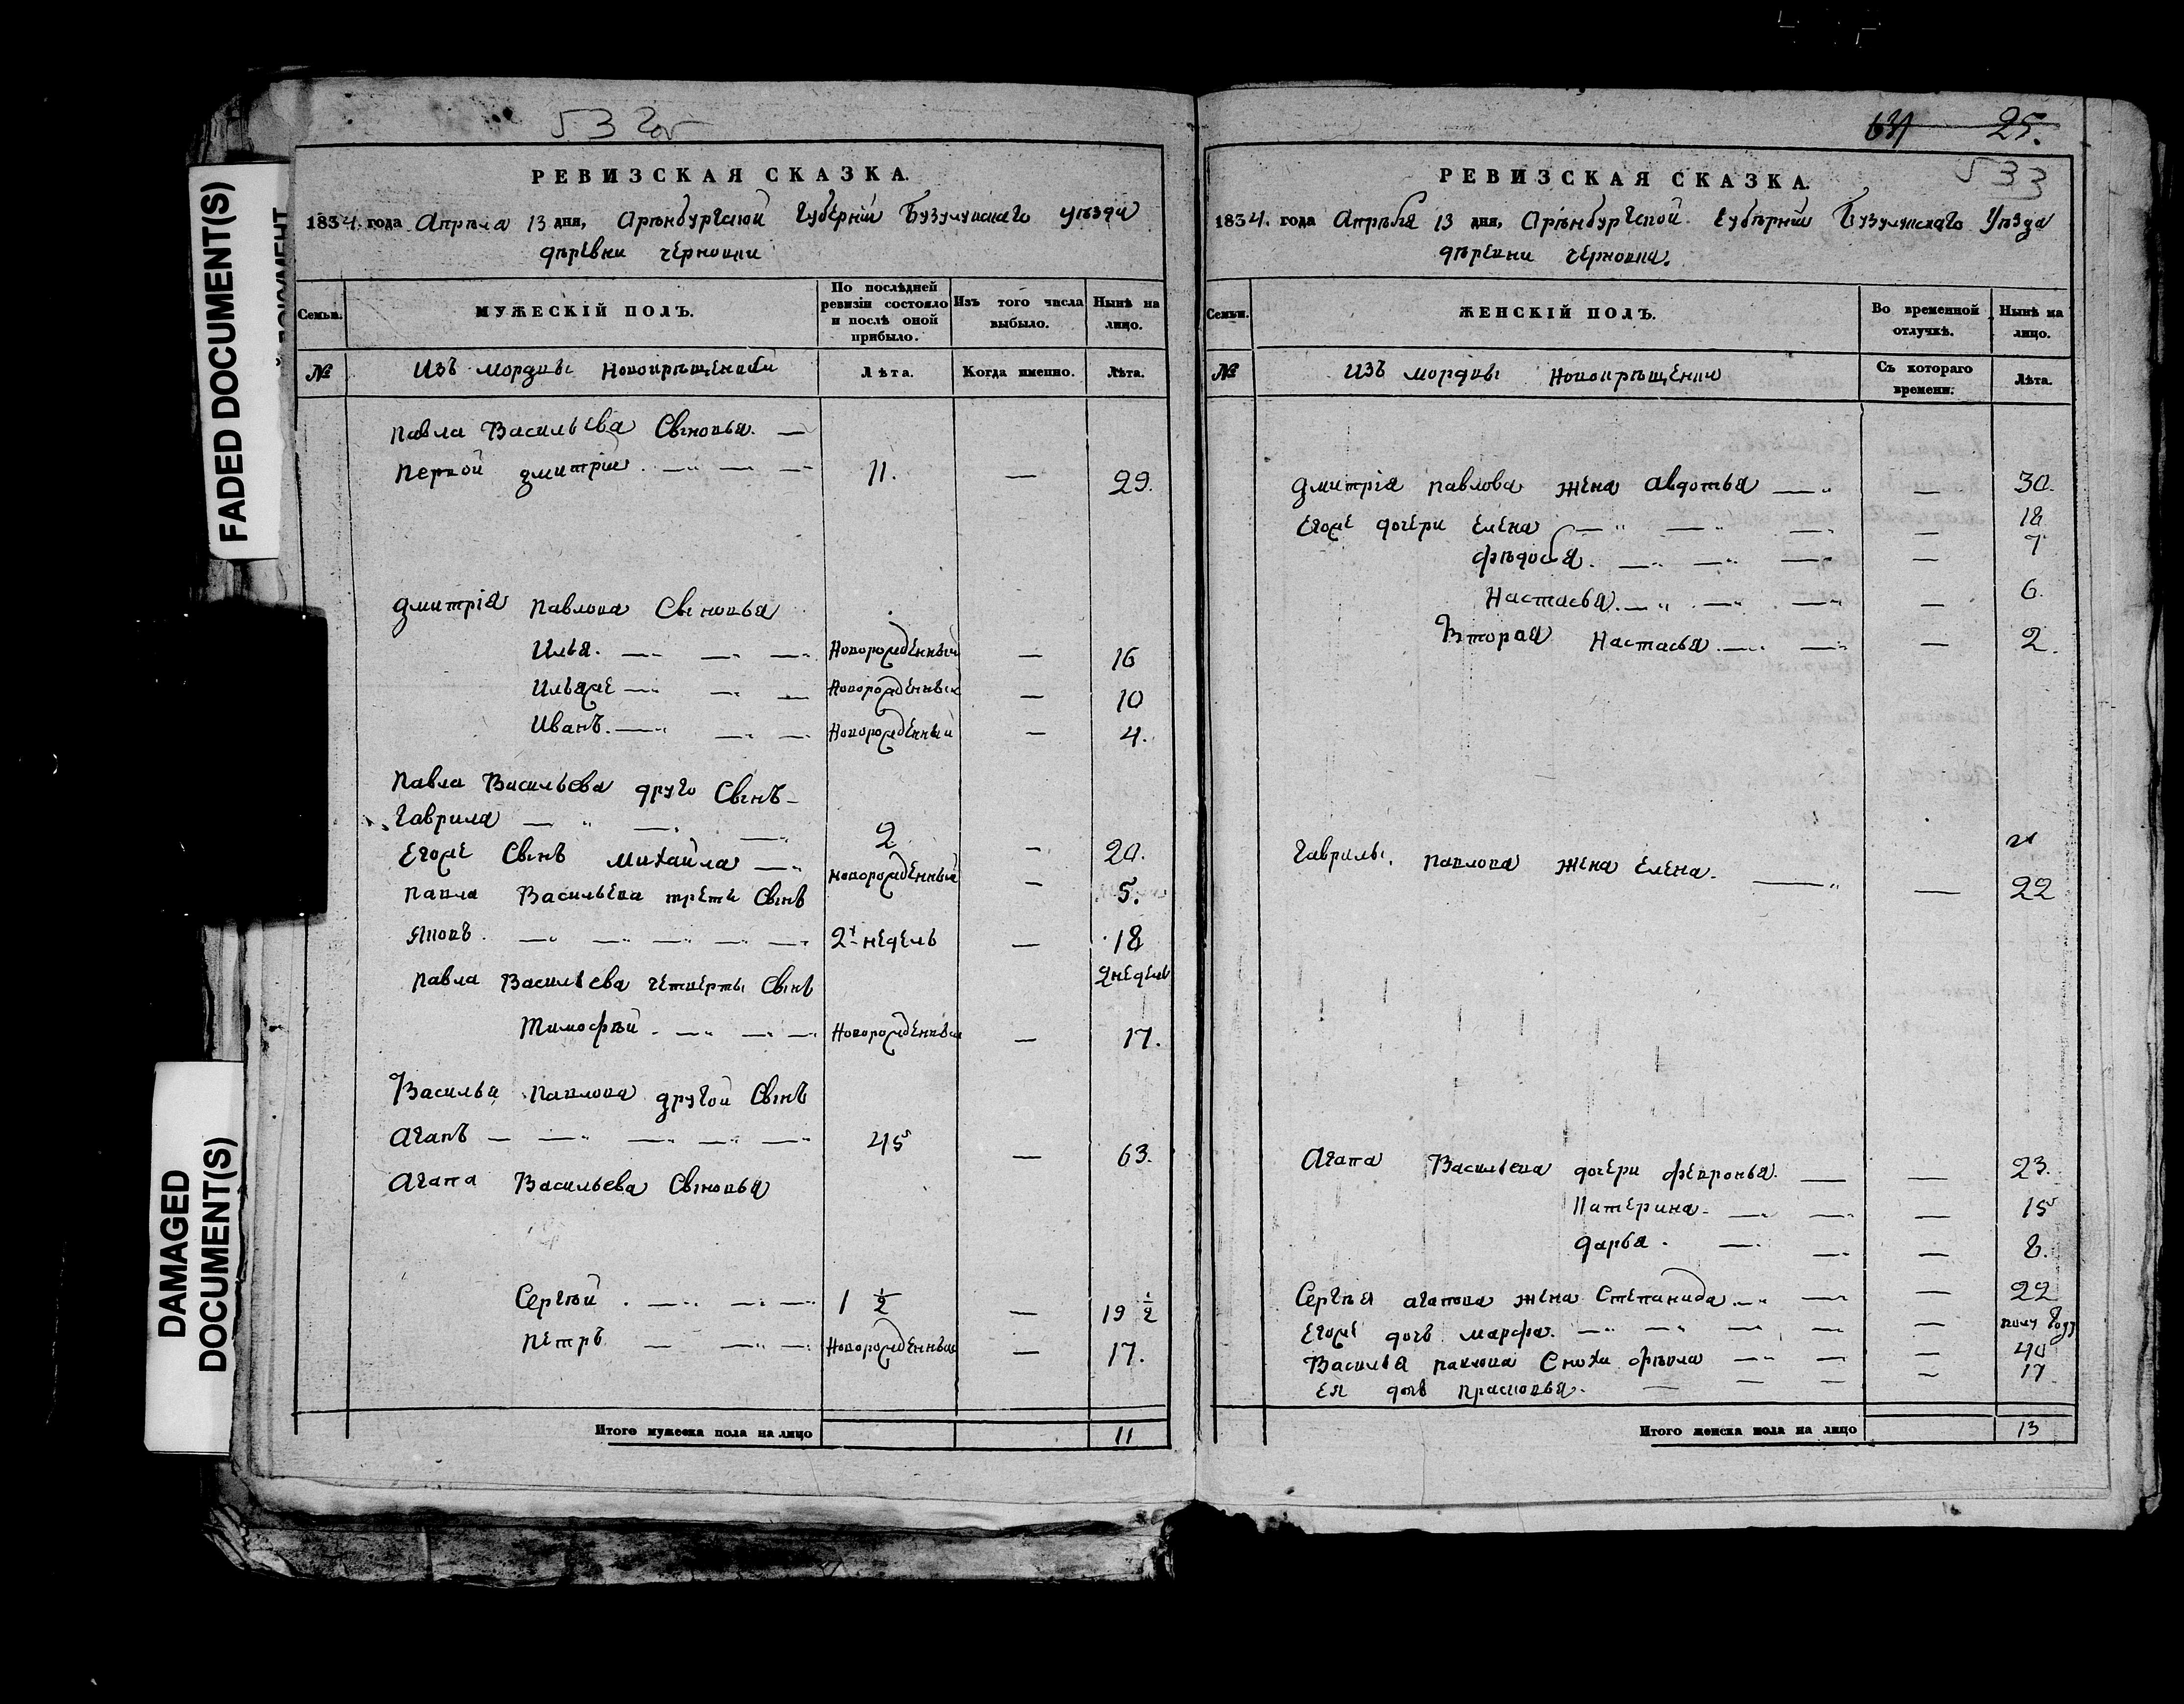 53 2об
РЕВИЗСКАЯ СКАЗКА.
1834. года Апрѣла 13 дня, Орѣнбургской Губернiи Бузулукскаго уѣзда
дѣревни черновки
Семьи.
МУЖЕСКІЙ ПОЛЪ.
По послѣдней ревизіи состояло и послѣ оной прибыло.
Изъ того числа выбыло.
Нынѣ на лицо.
№
Изъ мордвы Новокрѣщенной
Лѣта.
Когда именно.
Лѣта.
Павла Васильева Сыновья. —
Первой дмитрiй . — — — 11. — 29.
дмитрiя Павлова Сыновья
Илья. — — — Новорожденный — 16
Ильяже — — — Новорожденный — 10
Иванъ. — — — Новорожденный — 4.
Павла Васильева друго Сынъ —
Гаврила — — — 2 — 20.
Егоже Сынъ михайла — новорожденный — 5.
Павла Васильева трети Сынъ
Яковъ. — — — — — 2х недель — 18 2недели
Павла Васильева четверты Сынъ
Тимофѣй . — — — Новорожденный — 17.
Василья Павлова другой Сынъ
Агапъ — — — — — 45 — 63.
Агапа Васильева Сыновья
Сергѣй . — — — 1 ½ — 19 ½
Петръ — — — Новорожденный — 17.
Итого мужеска пола на лицо 11
25.
533
РЕВИЗСКАЯ СКАЗКА.
1834. года Апрѣля 13 дня, Орѣнбургской Губѣрнiи Бузулукскаго Уѣзда
дѣревни черновки.
Семьи.
ЖЕНСКІЙ ПОЛЪ.
Во временной отлучкѣ.
Нынѣ на лицо.
№
Изъ мордвы Новокрѣщении
Съ котораго времени.
Лѣта.
дмитрiя Павлова жена авдотья — — 30.
Егоже дочери Елена — — — — 18
фѣдосья. — — — — 7
Настасья. — — — — 6.
Вторая Настасья — — — 2.
Гаврилы. Павлова жена Елена. — — 22
Агапа Васильева дочери февронья. — — 23.
Катерина — — — — 15
дарья. — — — 8.
Сергѣя агапова жена Степанида — — — 22
Егоже дочь марфа. — — — — — полу году
Василья павлова Сноха фѣкла — — — 40
Ея дочь прасковья. — — — — 17
Итого женска пола на лицо 13
FADED DOCUMENT(S)
DAMAGED
DOCUMENT(S)